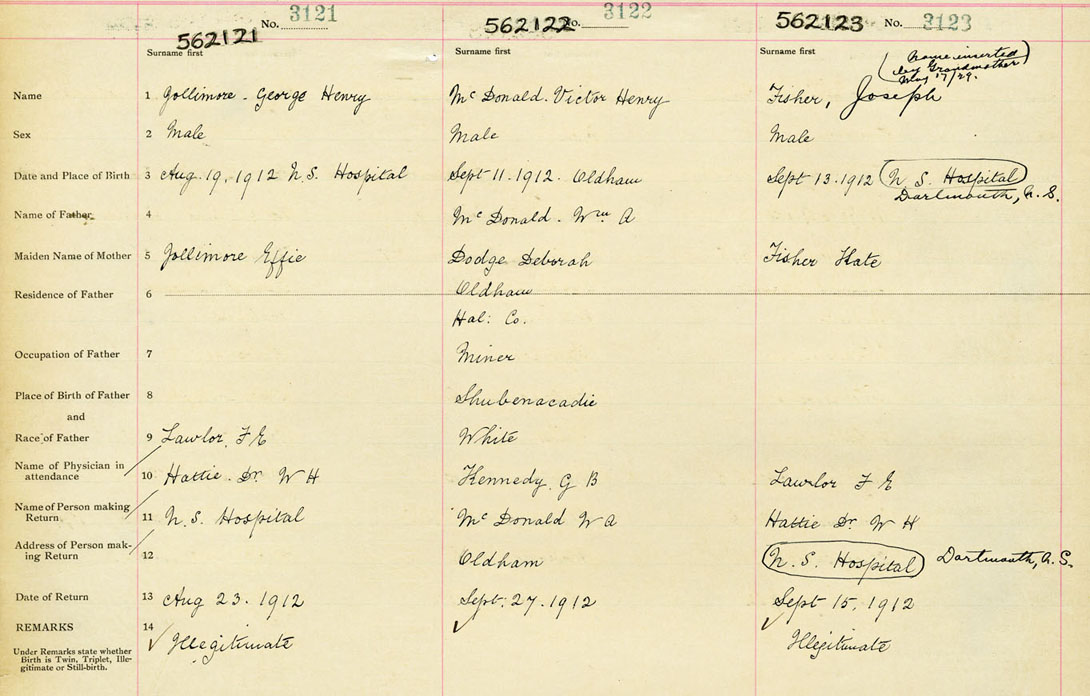 No. 3121
562121
Surname first
562122 No. 3122
Surname first
562123 No. 3123
Surname first
(Name inserted
by Grandmother
May 17/29.)
Name 1 Gollimore - George Henry
McDonald. Victor Henry
Fisher, Joseph
Sex 2 Male
Male
Male
Date and Place of Birth 3 Aug. 19. 1912 N.S. Hospital
Sept 11. 1912. Oldham
Sept 13. 1912 N. S. Hospital
Dartmouth, N. S.
Name of Father 4
McDonald. Wm A
Maiden Name of Mother 5 Gollimore Effie
Dodge Deborah
Fisher Kate
Residence of Father 6
Oldham
Hal: Co.
Occupation of Father 7
Miner
Place of Birth of Father 8
and
Shubenacadie
Race of Father 9 Lawlor. F E
White
Name of Physician in
attendance 10 Hattie. Dr. W H
Kennedy. G B
Lawlor F E
Name of Person making
Return 11 N.S. Hospital
McDonald W A
Hattie Dr. W H
Address of Person mak-
ing Return 12
Oldham
N. S. Hospital Dartmouth, N. S.
Date of Return 13 Aug 23. 1912
Sept. 27. 1912
Sept 15. 1912
REMARKS 14
Under Remarks state whether
Birth is Twin, Triplet, Ille-
gitimate or Still-birth.
Illegitimate
Illegitimate